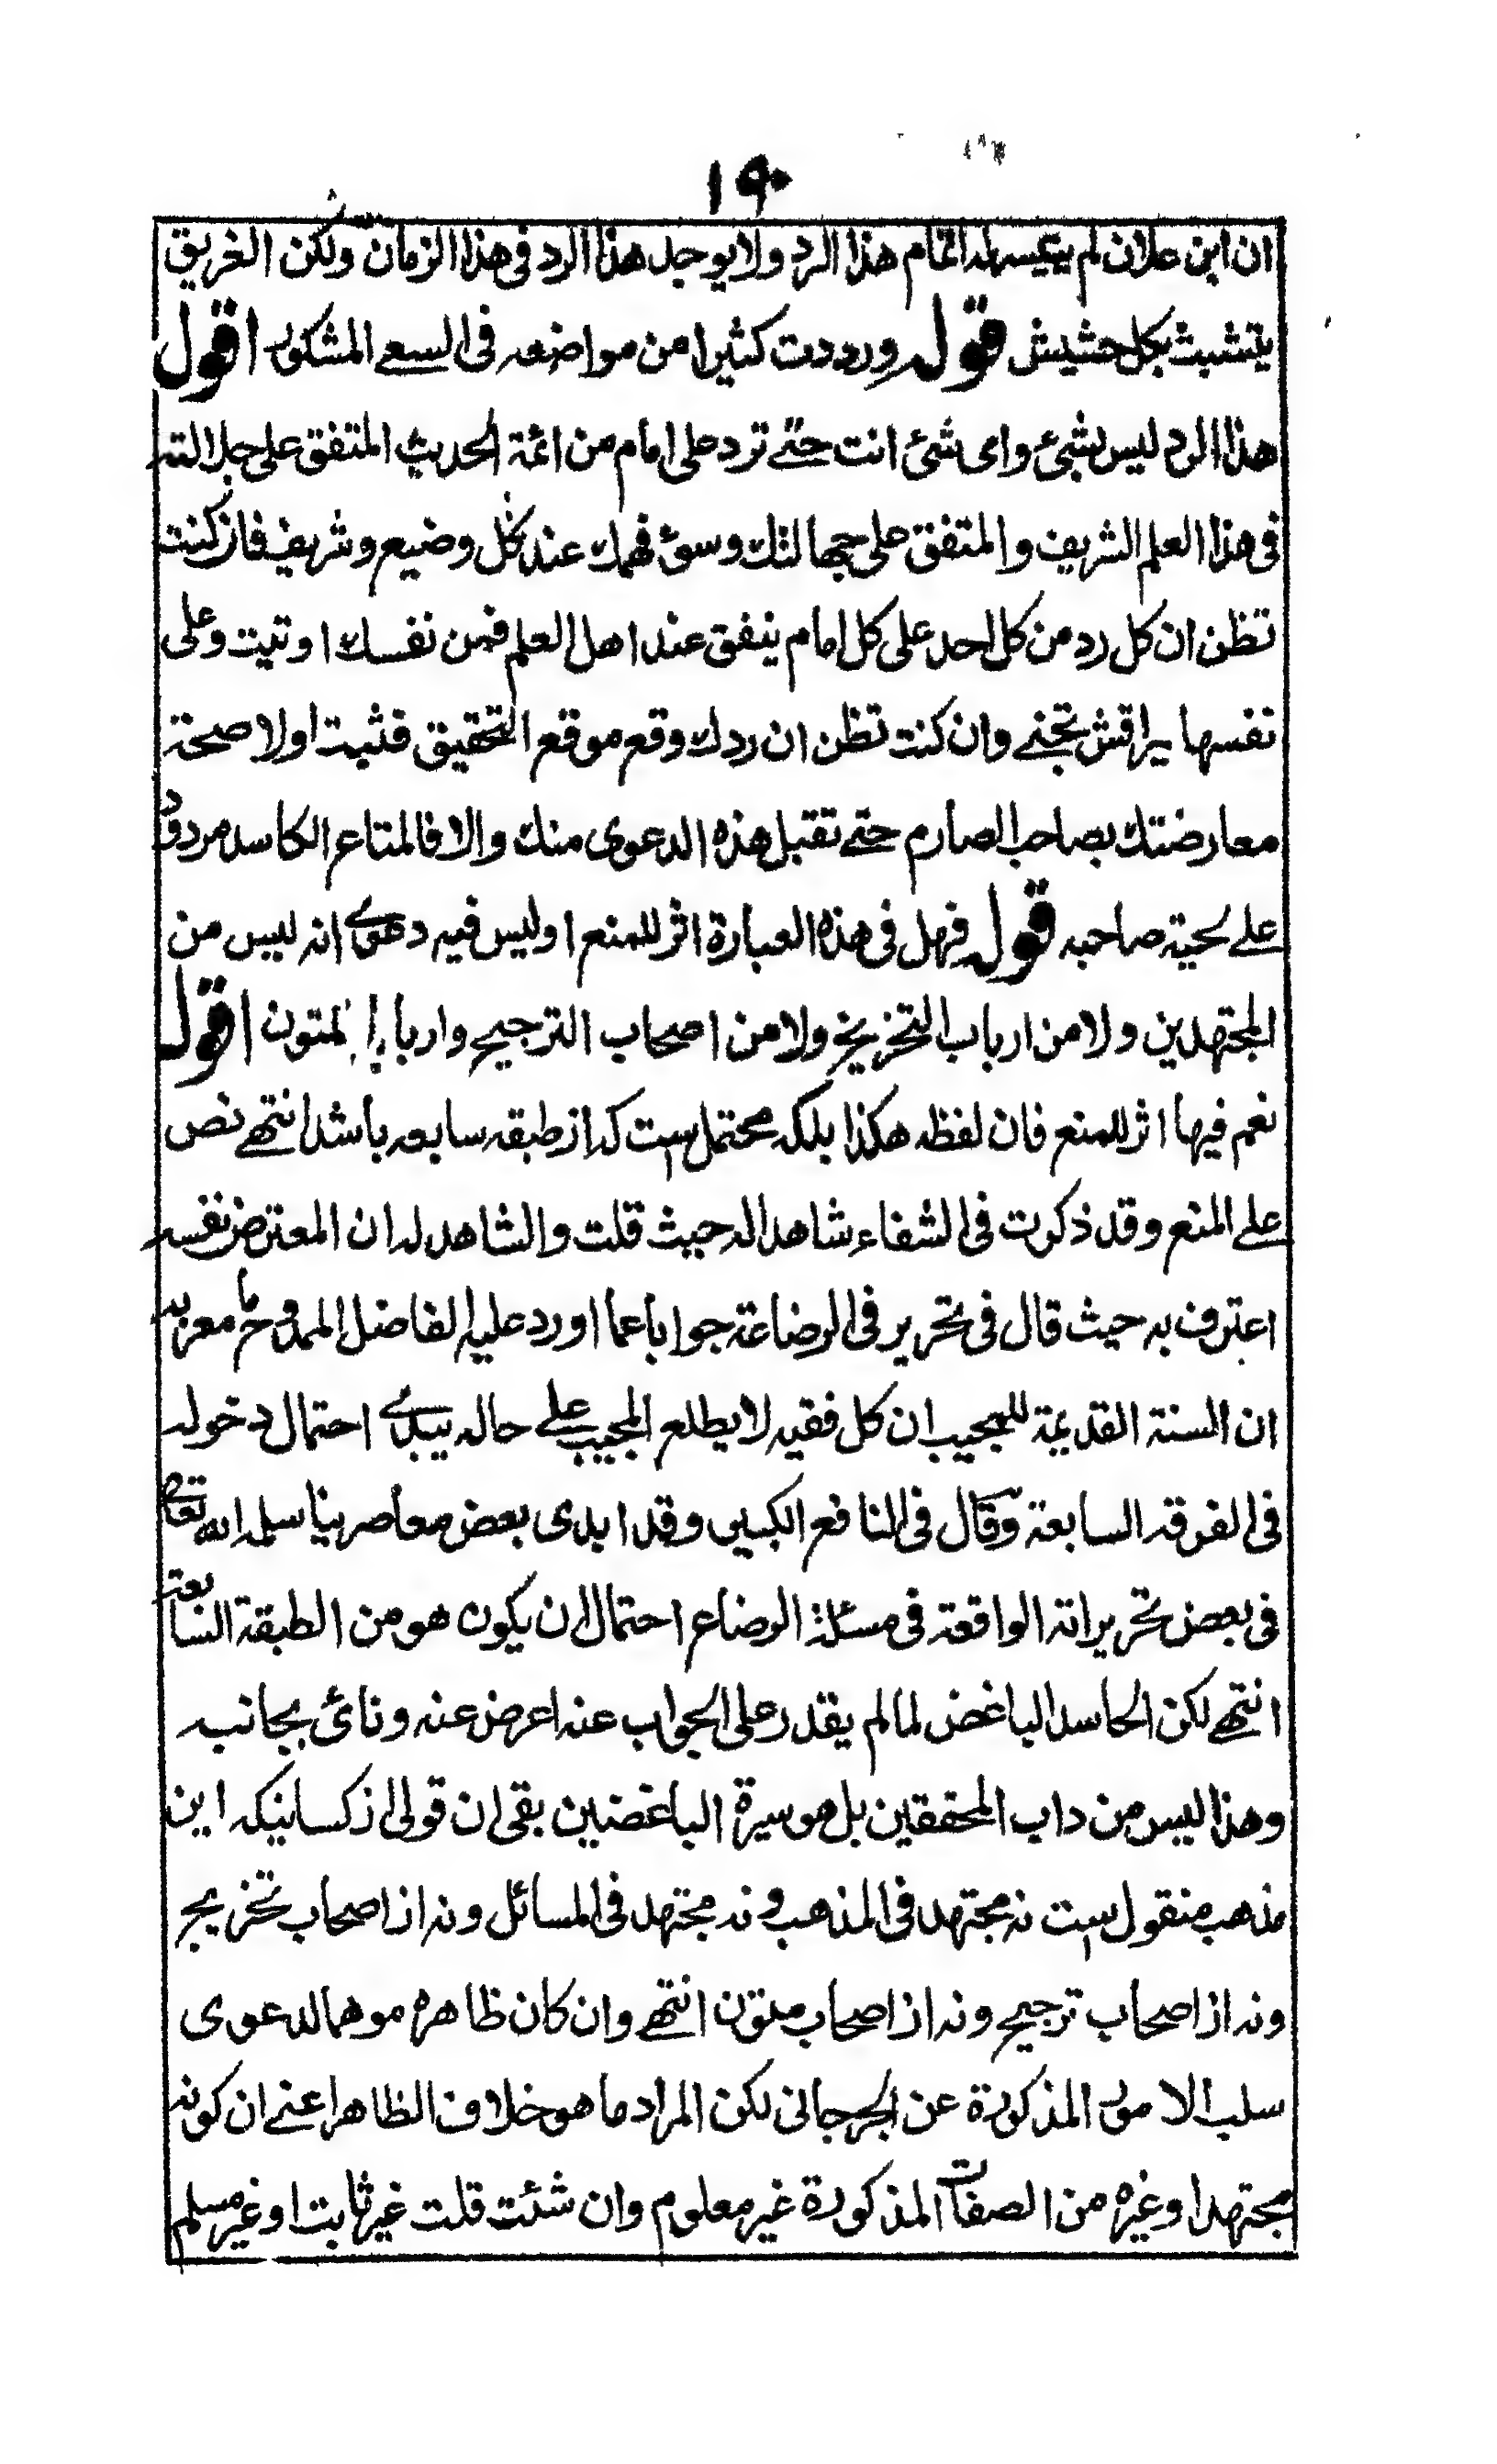 ١٩٠
ان ابن علان لم يتيسر له اتمام هذا الرد ولا يوجد هذا الرد فى هذا الزمان ولكن الغريق
يتشبث بكل حشيش قوله ورددت كثيرا من مواضعه فى السعے المشكور اقول
هذا الرد ليس بشیء وای شیء انت حتے ترد على امام من ائمة الحديث المتفق على جلالته
فى هذا العلم الشريف والمتفق على جهالتك وسوء فهمك عند كل وضيع وشريف فان كنت
تظن ان كل رد من كل احد على كل امام ينفق عند اهل العلم فمن نفسك اوتيت وعلى
نفسها براقش تجنے وان كنت تظن ان ردك وقع موقع التحقيق فثبت اولا صحة
معارضتك بصاحب الصارم حتے تقبل هذه الدعوى منك والا فالمتاع الكاسد مردود
علے لحية صاحبه قوله فهل فى هذه العبارة اثر للمنع اوليس فيه دعوے انه ليس من
المجتهدين ولا من ارباب التخريج ولا من اصحاب الترجيح وارباب المتون اقول
نعم فيها اثر للمنع فان لفظه هكذا بلكه محتمل است كه از طبقه سابعه باشد انتهے نص
علے المنع وقد ذكرت فى الشفاء شاهدا له حيث قلت والشاهد له ان المعترض نفسه
اعترف به حيث قال فى تحرير فى الرضاعة جوابا عما اورد عليه الفاضل الممدوح ما معربه
ان السنة القديمة للمجيب ان كل فقيه لا يطلع المجيب علے حاله يبدے احتمال دخوله
فى الفرقه السابعة وقال فى النافع الكبير وقد ابدى بعض معاصرينا سلمه الله تعالے
فى بعض تحريراته الواقعة فى مسئلة الرضاع احتمال ان يكون هو من الطبقة السابعة
انتهے لكن الحاسد الباغض لما لم يقدر على الجواب عنه اعرض عنه ونائ بجانبه
وهذا ليس من داب المحققين بل هو سيرة الباغضين بقى ان قولى از كسانيكه اين
مذهب منقول است نه مجتهد فى المذهب و نه مجتهد فى المسائل و نه از اصحاب تخريج
و نه از اصحاب ترجيح و نه از اصحاب متون انتهے وان كان ظاهره موهما لدعوى
سلب الامور المذكورة عن الجرجانى لكن المراد ما هو خلاف الظاهر اعنے ان كونه
مجتهدا وغيره من الصفات المذكورة غير معلوم وان شئت قلت غير ثابت او غير مسلم